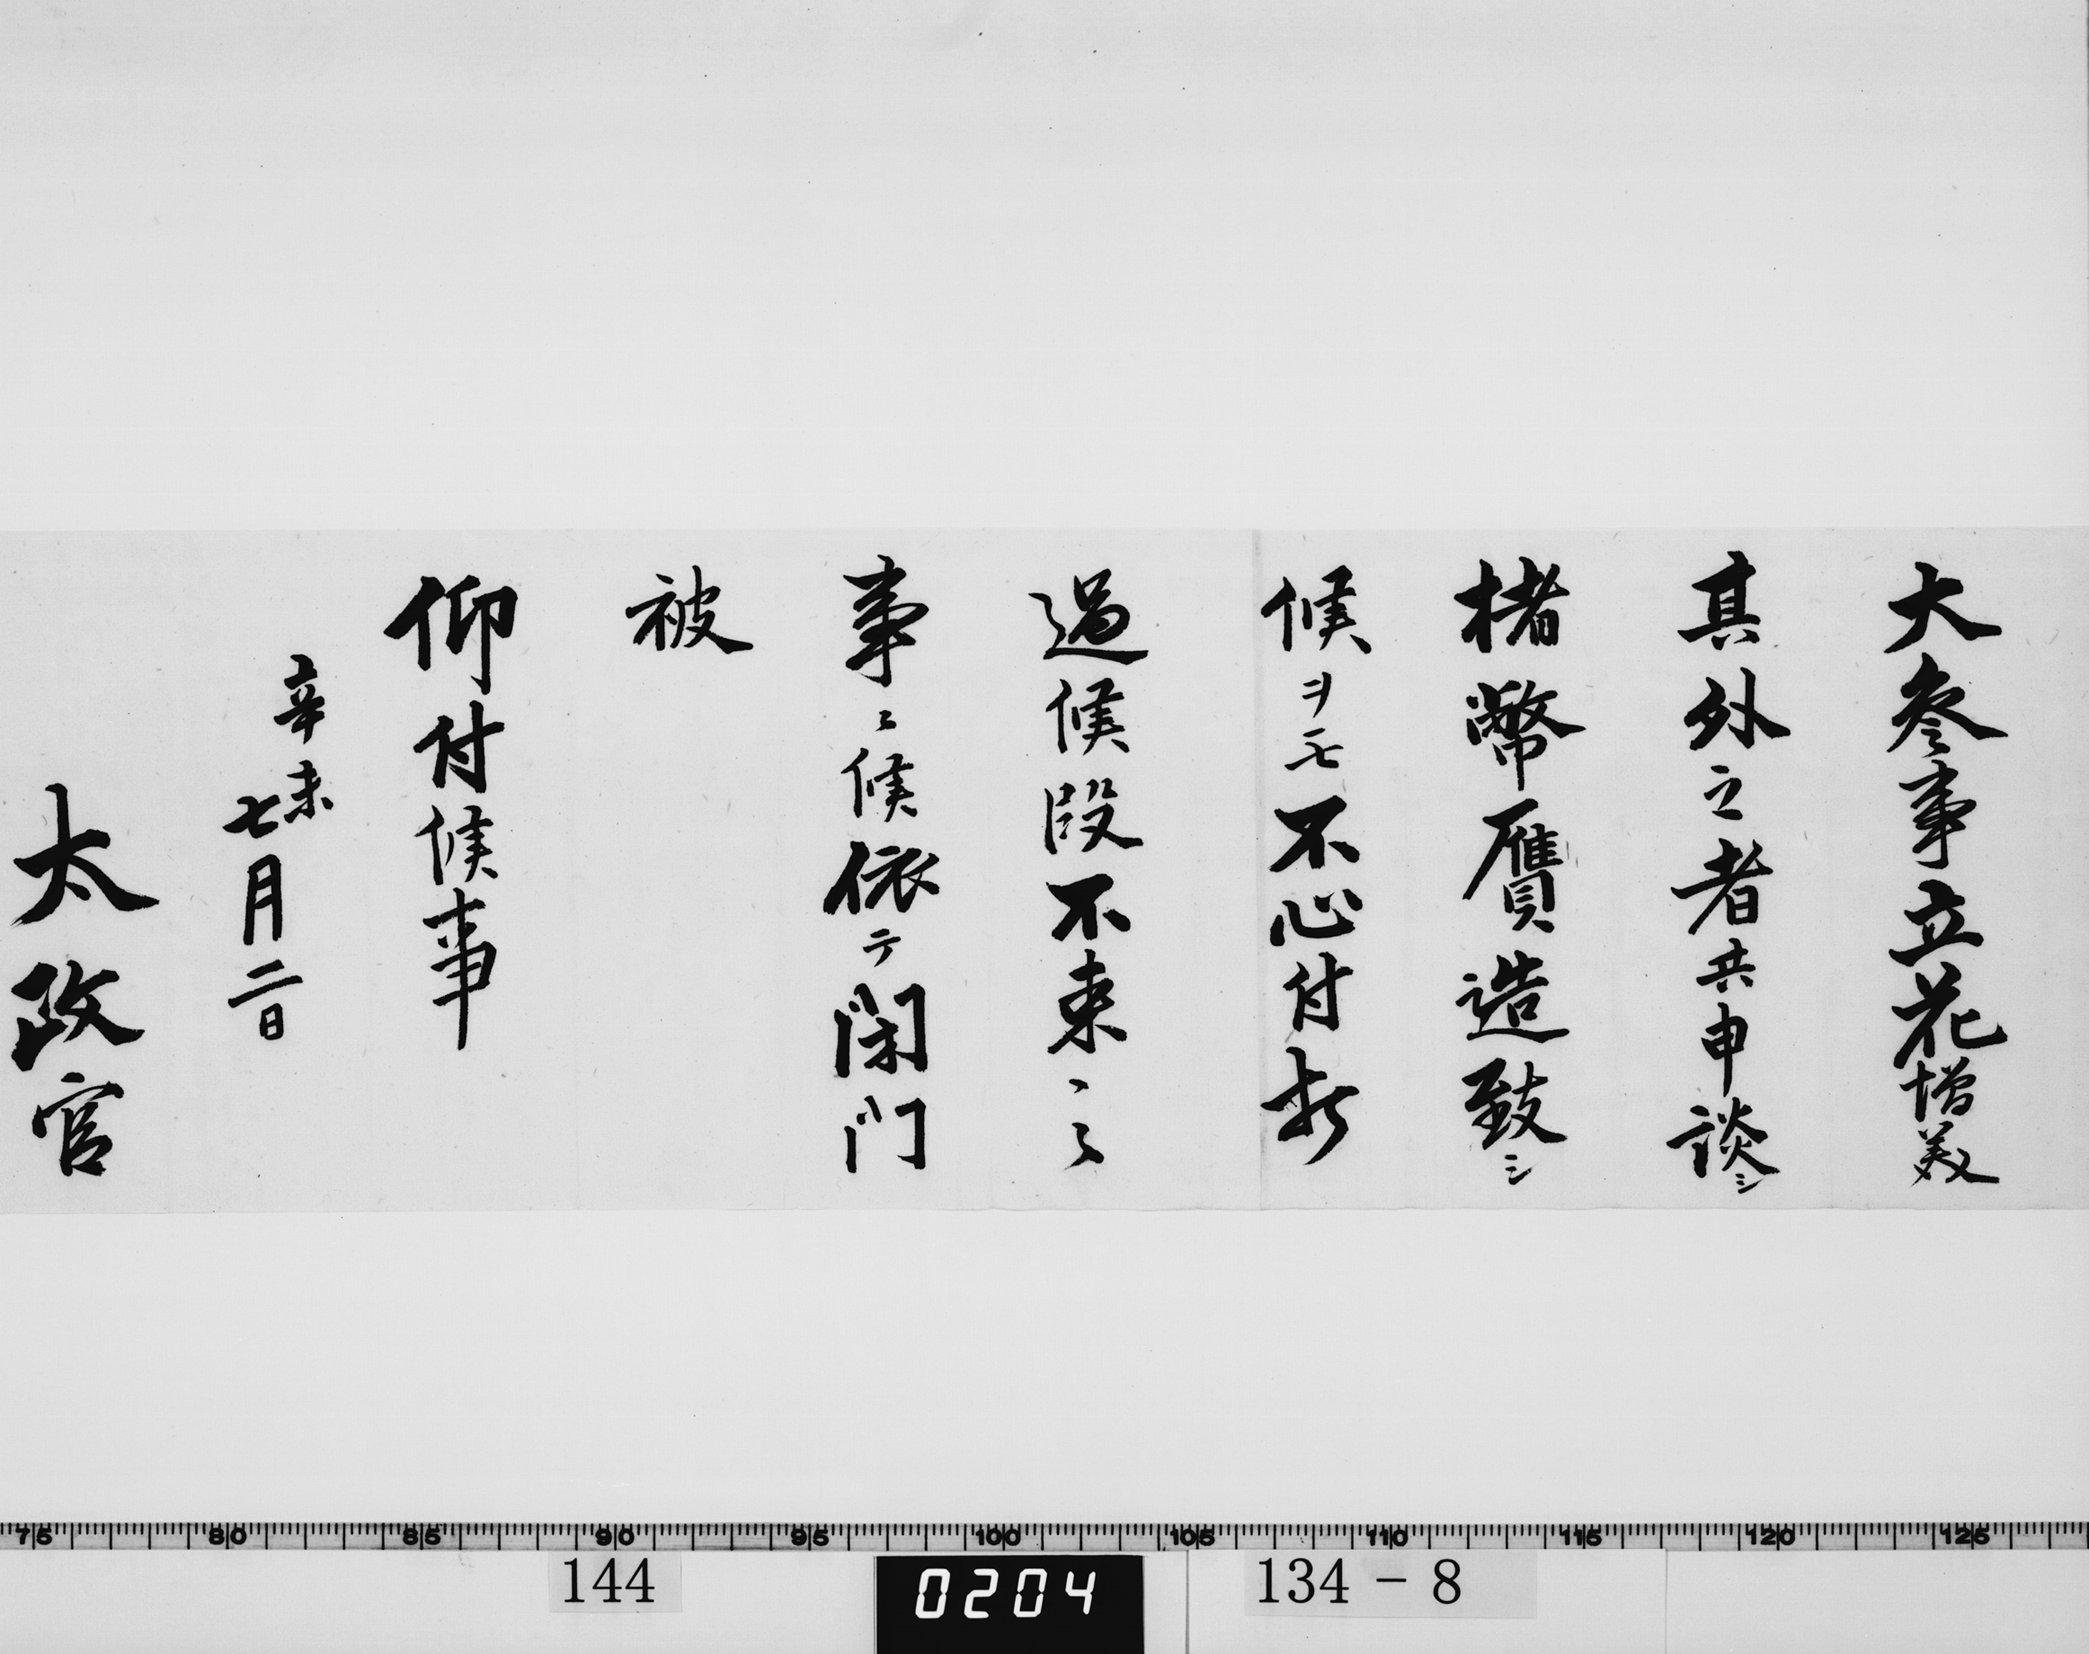 大參事立花增美
其外之者共申談シ
楮幣贋造致シ
候ヲモ不心付打
過候段不束之
事ニ候依テ閉門
被
仰付候事
辛未
七月二日
太政官
75 80 85 90 95 100 105 110 115 120 125
144 0204 134-8